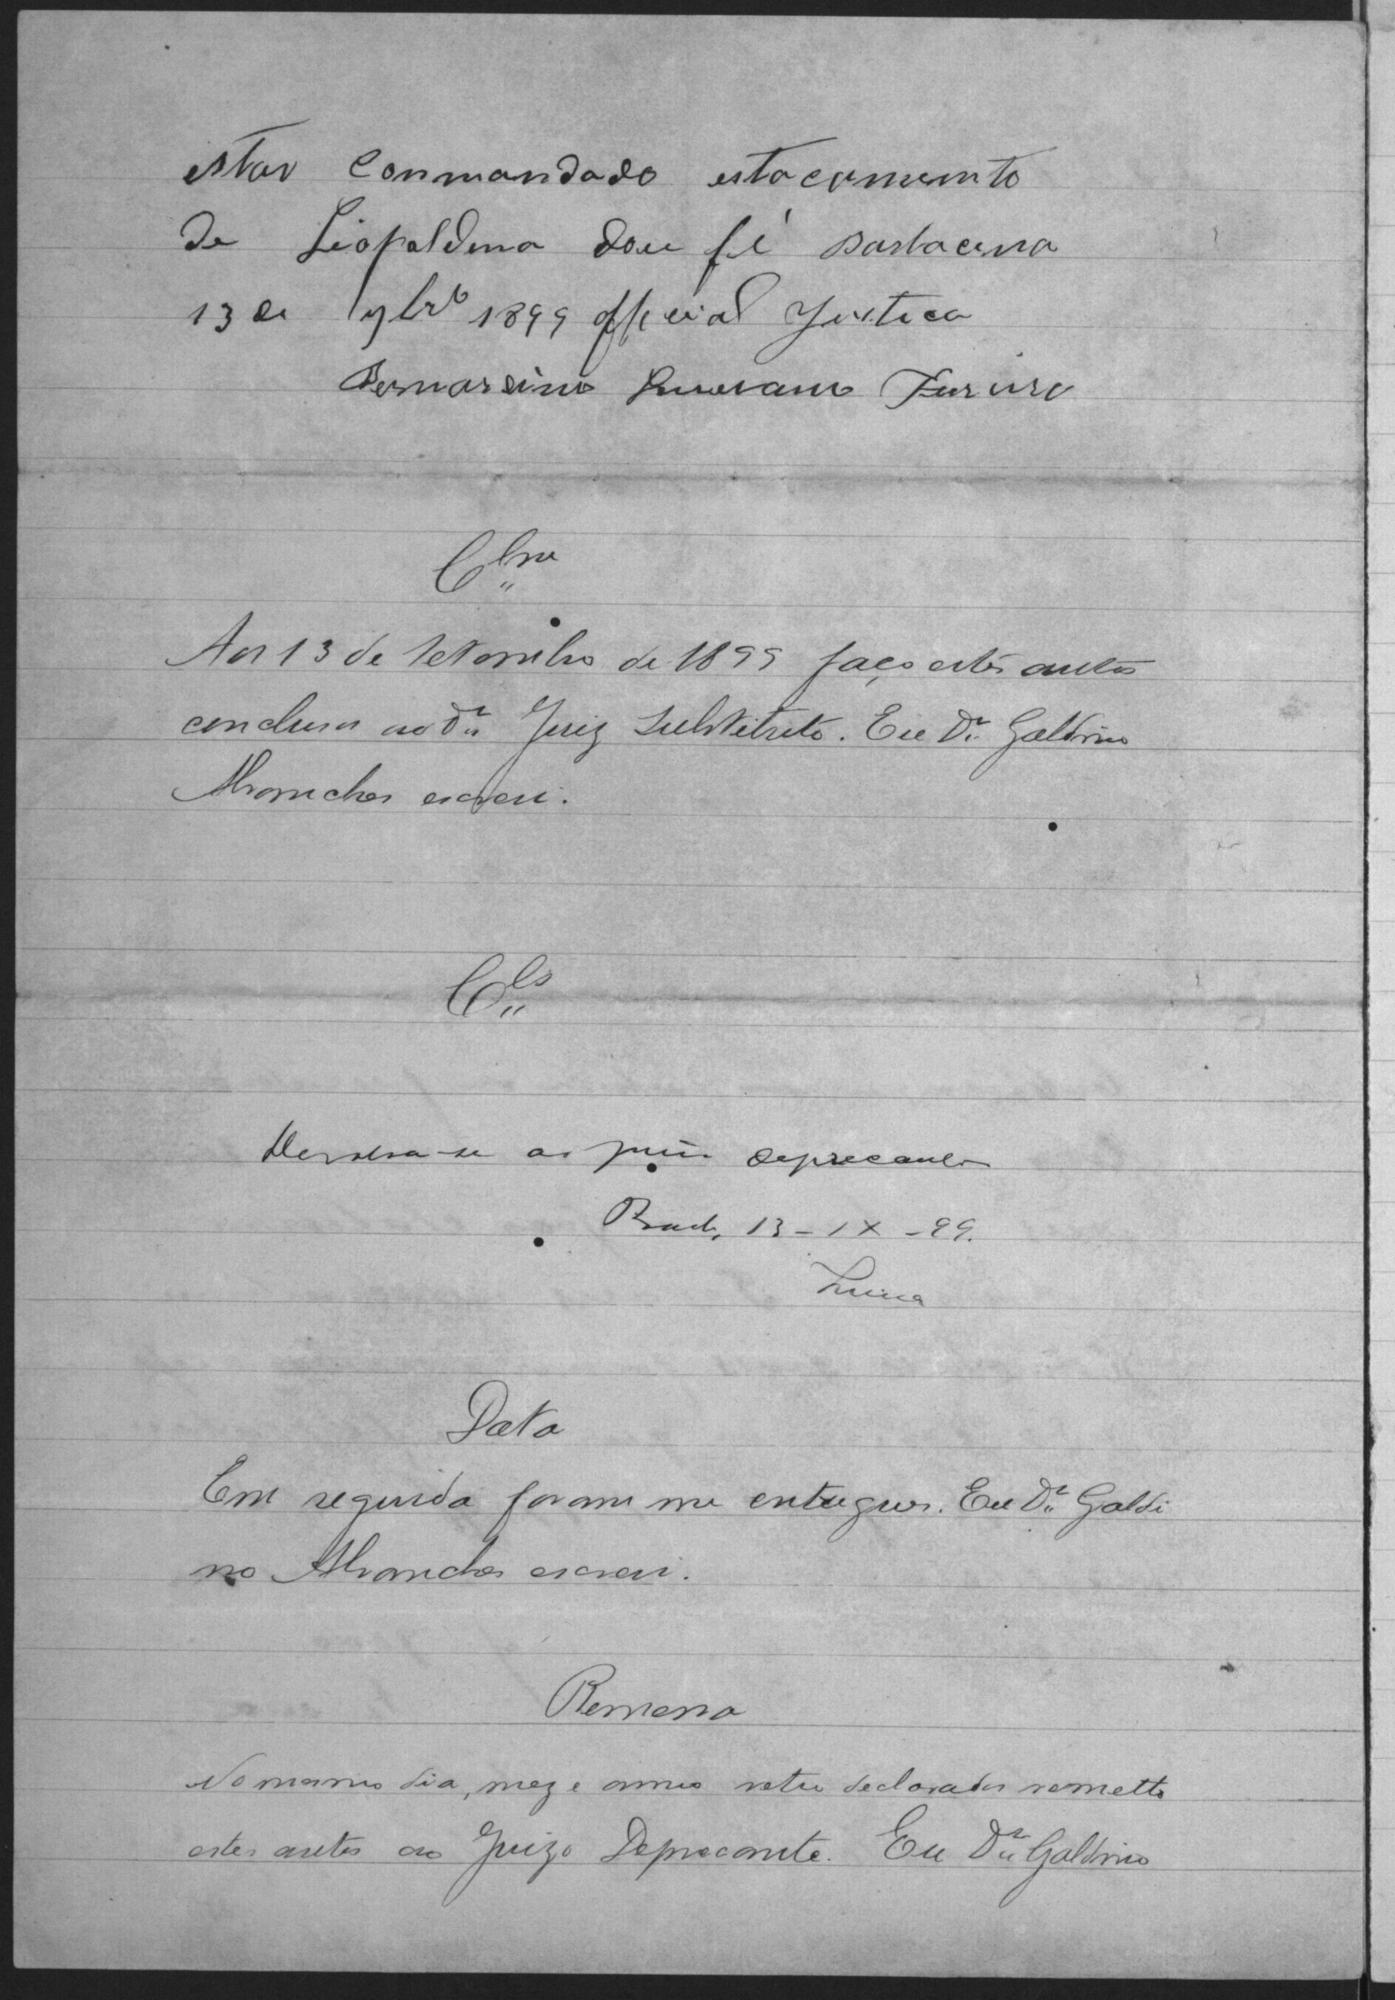 estar Commandado estacamento
de Liopoldina dou fé Barbacena
13 de 7brº 1899 official Justica
Bernardino
Clm
Aos 13 de Setembro de 1899 faço estes autos
conclusos ao Dr. Juiz Substituto. Eu Dr. Galdino
Abranches escrevi.
Cls
Devolva-se ao juizo deprecante
Barb. 13-IX-99.
Data
Em seguida foram me entregues. Eu Dr. Galdi
no Abranches escrevi.
Remessa
No mesmo dia, mez e anno retro declarados remetto
estes autos ao Juizo Deprecante. Eu Dr. Galdino